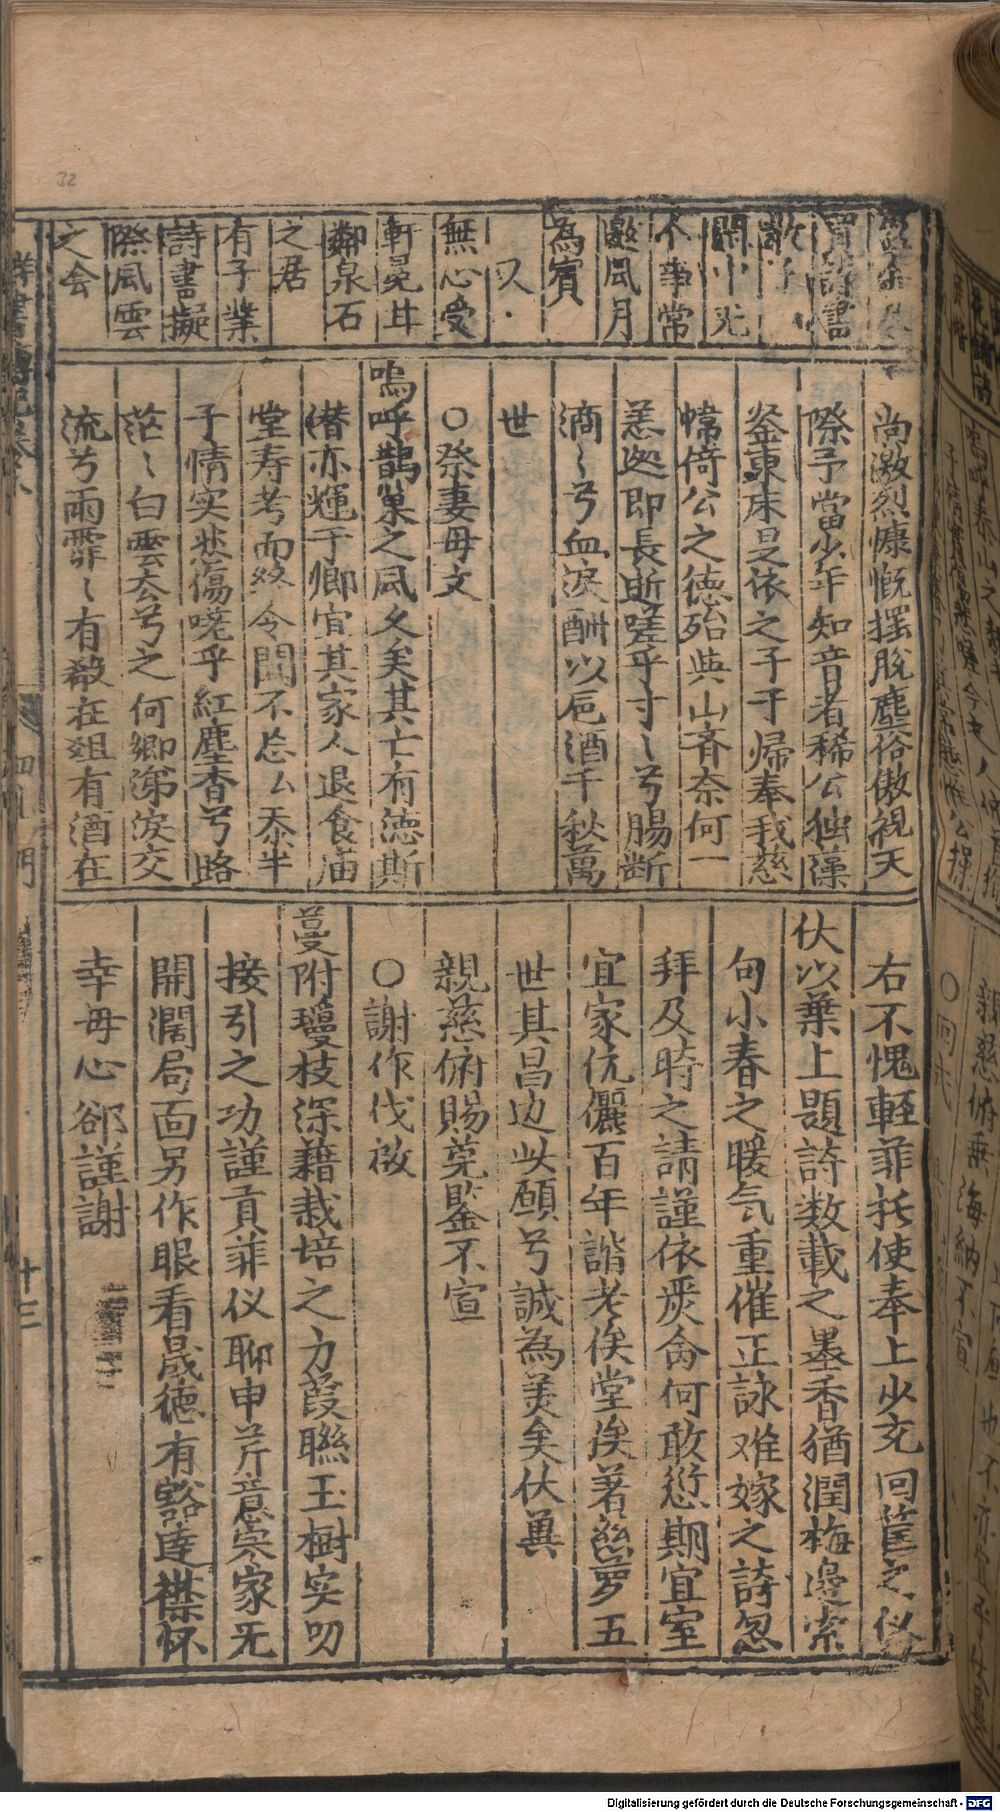 詩書
敢子
閑中光
不辜常
邀風月
為賓
又
無心受
軒冕甘
鄰泉石
之居
有子業
詩書擬
際風雲
之会
尚激烈慷慨擺脫塵俗傲視天
際予當少年知音者稀公独藻
鉴東床是依之子于帰奉我慈
幃倚公之德殆与山斉奈何一
恙迎即長逝嗟乎寸〻兮腸断
滴〻兮血淚酬以巵酒千秋萬
世
○祭妻母文
嗚呼鵲巢之風久矣其亡有德斯
潜亦輝于卿宜其家人退食庙
堂寿考而終令聞不忘厶忝半
子情实悲傷嗟乎紅塵杳兮路
茫〻白雲去兮之何鄉涕淚交
流兮雨霏〻有殽在俎有酒在
右不愧輕菲托使奉上少充回筐之仪
伏以葉上題詩数載之墨香猶潤梅邊索
句小春之暖气重催正詠难嫁之詩忽
拜及時之請謹依灵禽何敢愆期宜室
宜家伉儷百年諧老俟堂俟著丝萝五
世其昌迈此願兮誠為美矣伏兾
親慈俯賜莞鉴不宣
○謝作伐啟
蔓附瓊枝深藉栽培之力葭聯玉樹实叨
接引之功謹貢菲仪聊申芹意寒家旡
開濶局面另作眼看晟德有豁達襟怀
幸毋心郤謹謝
十三
32
Digitalisierung gefördert durch die Deutsche Forschungsgemeinschaft - DFG